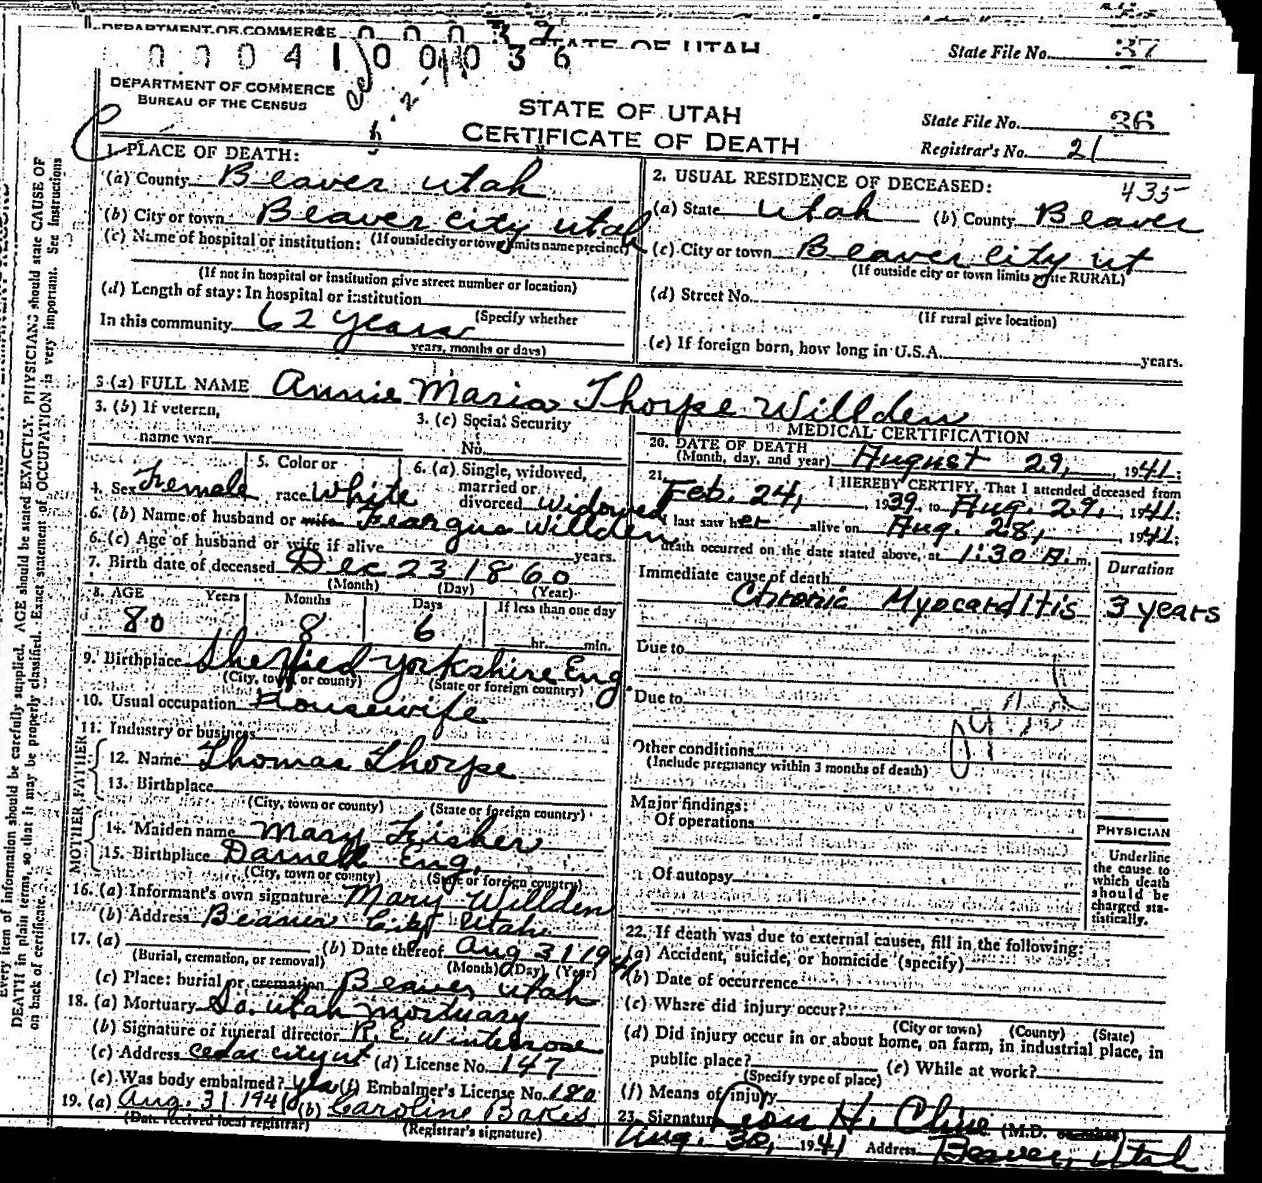 DEPARTMENT OF COMMERCE
STATE OF UTAH
State File No. 37
0 0 0 4 1 0 0 0 3 6
DEPARTMENT OF COMMERCE
BUREAU OF THE CENSUS
STATE OF UTAH
CERTIFICATE OF DEATH
State File No. 36
Registrar's No. 21
1. PLACE OF DEATH:
(a) County Beaver Utah
(b) City or town Beaver City Utah
(If outside city or town limits name precinct)
(c) Name of hospital or institution:
(If not in hospital or institution give street number or location)
(d) Length of stay: In hospital or institution
(Specify whether
In this community 62 years
years, months or days)
2. USUAL RESIDENCE OF DECEASED: 435
(a) State Utah (b) County Beaver
(c) City or town Beaver City Ut
(If outside city or town limits write RURAL)
(d) Street No.
(If rural give location)
(e) If foreign born, how long in U.S.A. years.
3 (a) FULL NAME Annie Maria Thorpe Willden
3. (b) If veteran,
name war
3. (c) Social Security
No.
4. Sex Female
5. Color or
race White
6. (a) Single, widowed,
married or
divorced Widowed
6. (b) Name of husband or wife Feargus Willden
6. (c) Age of husband or wife if alive years.
7. Birth date of deceased Dec 23 1860
(Month) (Day) (Year)
8. AGE Years Months Days If less than one day
80 8 6 hr. min.
9. Birthplace Sheffied Yorkshire Eng.
(City, town, or county) (State or foreign country)
10. Usual occupation Housewife
11. Industry or business
FATHER
12. Name Thomas Thorpe
13. Birthplace
(City, town or county) (State or foreign country)
MOTHER
14. Maiden name Mary Fisher
15. Birthplace Darnell Eng.
(City, town or county) (State or foreign country)
16. (a) Informant's own signature Mary Willden
(b) Address Beaver City Utah
17. (a) (b) Date thereof Aug 31 1941
(Burial, cremation, or removal) (Month) (Day) (Year)
(c) Place: burial or cremation Beaver Utah
18. (a) Mortuary So. Utah Mortuary
(b) Signature of funeral director R. E. Winterrose
(c) Address Cedar City Ut (d) License No. 147
(e) Was body embalmed? yes (f) Embalmer's License No. 180
19. (a) Aug. 31 1941 (b) Caroline Bakes
(Date received local registrar) (Registrar's signature)
MEDICAL CERTIFICATION
20. DATE OF DEATH
(Month, day, and year) August 29, 1941:
21. I HEREBY CERTIFY, That I attended deceased from
Feb. 24, 1939 to Aug. 29, 1941:
I last saw her alive on Aug. 28, 1941:
death occurred on the date stated above, at 1:30 A. m.
Immediate cause of death
Duration
Chronic Myocarditis 3 years
Due to
Due to
Other conditions
(Include pregnancy within 3 months of death)
Major findings:
Of operations
Of autopsy
PHYSICIAN
Underline
the cause to
which death
should be
charged sta-
tistically.
22. If death was due to external causes, fill in the following:
(a) Accident, suicide, or homicide (specify)
(b) Date of occurrence
(c) Where did injury occur?
(City or town) (County) (State)
(d) Did injury occur in or about home, on farm, in industrial place, in
public place? (e) While at work?
(Specify type of place)
(f) Means of injury
23. Signature Leon H. Cline (M.D.
Aug. 30, 1941 Address Beaver, Utah
Every item of information should be carefully supplied. AGE should be stated EXACTLY. PHYSICIANS should state CAUSE OF
DEATH in plain terms, so that it may be properly classified. Exact statement of OCCUPATION is very important. See instructions
on back of certificate.